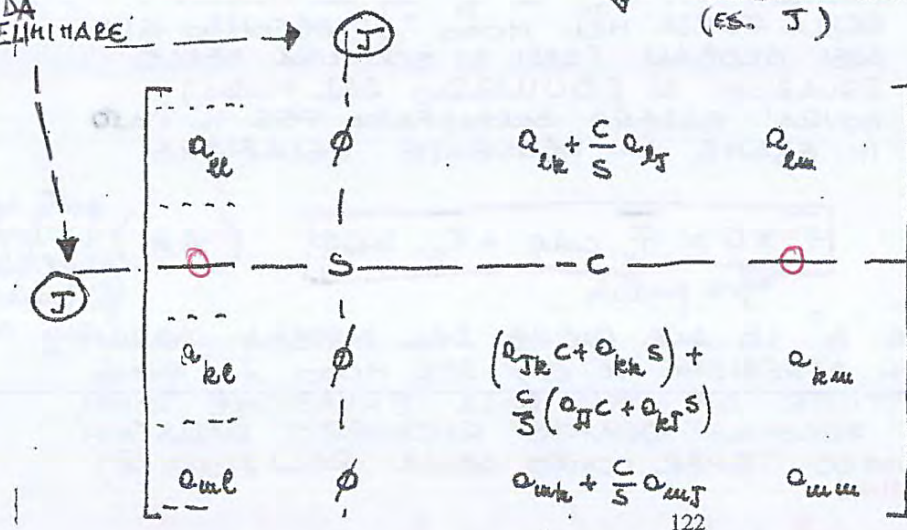 DA
ELIMINARE
J
(ES. J)
a_ll ∅ a_lk + C/S a_lJ a_lm
J 0 S -C 0
a_kl ∅ (a_Jk C + a_kk S) + a_km
C/S (a_JJ C + a_kJ S)
a_ml ∅ a_mk + C/S a_mJ a_mm
122